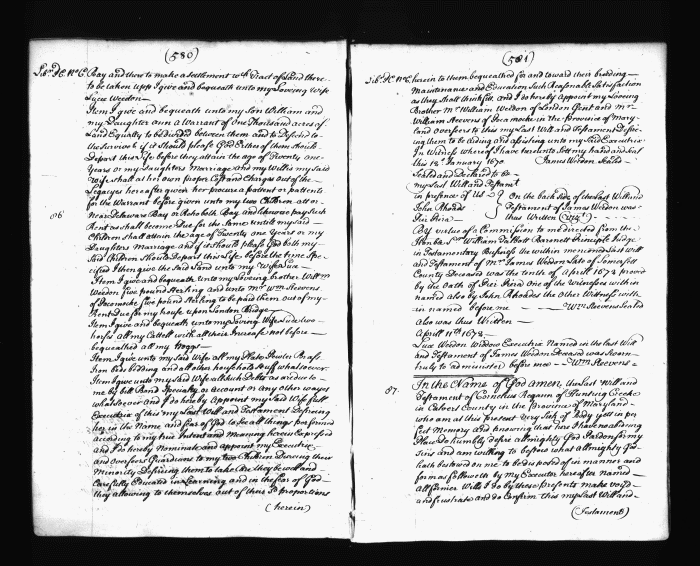 (580)
Lib.r I.C. No. C. Bay and there to make a settlement w.th Tract of Land there
to be taken upp I give and bequeath unto my Loveing Wife
Luce Weedon
Item I give and bequeath unto my Son William and
my Daughter ann a Warrant of One Thousand acres of
Land Equally to be divided between them and to Descend to
the Survivor if it Should please God Either of them Should
Depart this Life before they attain the age of Twenty one
Years or my Daughters Marriage and my Will is my Said
Wife shall at her own proper Cost and Charges out of the
Legacyes hereafter given her procure a pattent or pattents
for the Warrant before given unto my two Children att or
86 Near Delaware Bay or Rehoboth Bay and likewise pay Such
Rent as shall become Due for the Same untill my said
Children shall attain the age of Twenty one Years or my
Daughters Marriage and if it Should please God both my
Said Children Should Depart this Life before the time Spe-
cified I then give the Said Land unto my Wife Luce
Item I give and bequeath unto my Loveing brother Will.m
Weedon five pound Sterling and unto Mr. Wm Stevens
of Pocomocke five pound Sterling to be paid them out of my
Rent Due for my house upon London Bridge
Item I give and bequeath unto my Loveing Wife Luce two
horses all my Cattell with all their Increase not before
bequeathed all my Hoggs
Item I give unto my Said Wife all my Plate Pewter Brass
Iron beds bedding and all other household stuff whatsoever
Item I give unto my Said Wife all Such Debts as are due to
me by bill Bond Specialty or account or Any other wayes
whatsoever and I do hereby appoint my Said Wife full
Executrix of this my Last Will and Testament Desireing
her in the Name and fear of God to See all things performed
according to my true Intent and Meaning herein Expressed
and I do hereby Nominate and appoint my Executrix
and overseers Guardians to my two Children Dureing their
Minority Desireing them to take Care they be well and
Carefully Educated in Learning and in the fear of God
they allowing to themselves out of their Sd. proportions
(herein)
(581)
Lib.r I.C. No. C. herein to them bequeathed for and toward their breeding
Maintenance and Education Such Reasonable Satisfaction
as they Shall think fitt, and I do hereby appoint my Loveing
Brother Mr. William Weedon of London Gent and Mr.
William Stevens of Pocomocke in the Province of Mary-
land overseers to this my Last Will and Testament Desire-
ing them to be aiding and assisting unto my Said Executrix
In Witness whereof I have hereunto Sett my hand and Seal
this 12th January 1670 James Weedon Seal'd
Sealed and Declared to be
my last Will and Testam.t
in presence of Us
John Rhoads
Pier Pina
On the back Side of the Last Will and
Testament of James Weedon was
thus Written (Viz.t)
By Virtue of a Commission to me Directed from the
Hon.ble Sr. William Talbott Barronett Principle Judge
in Testamentary Business the within mencioned Last Will
and Testament of Mr. James Weedon Late of Somersett
County Deceased was the tenth of Aprill 1673 proved
by the Oath of Pier Pina One of the Witnesses within
named also by John Rhoades the Other Witness with-
in named before me Wm. Stevens Sealed
Also was thus Written
Aprill 11th 1673
Luce Weedon Widdow Executrix Named in the Last Will
and Testament of James Weedon Deceased was Sworn
truly to administer before me Wm. Stevens
87. In the Name of God amen the Last Will and
Testament of Cornelius Regain of Hunting Creeke
in Calvert County in the Province of Maryland
who am at this present very Sick of Body yett in per
fect Memory and knowing that here I have no abiding
Place Do humbly desire allmighty God Pardon for my
Sins and am willing to bestow what allmighty God
hath bestowed on me to be disposed of in manner and
form as followeth by my Executor hereafter named
all former Wills I do by these presents make void
and frustrate and do Confirm this my Last Will and
(Testament)